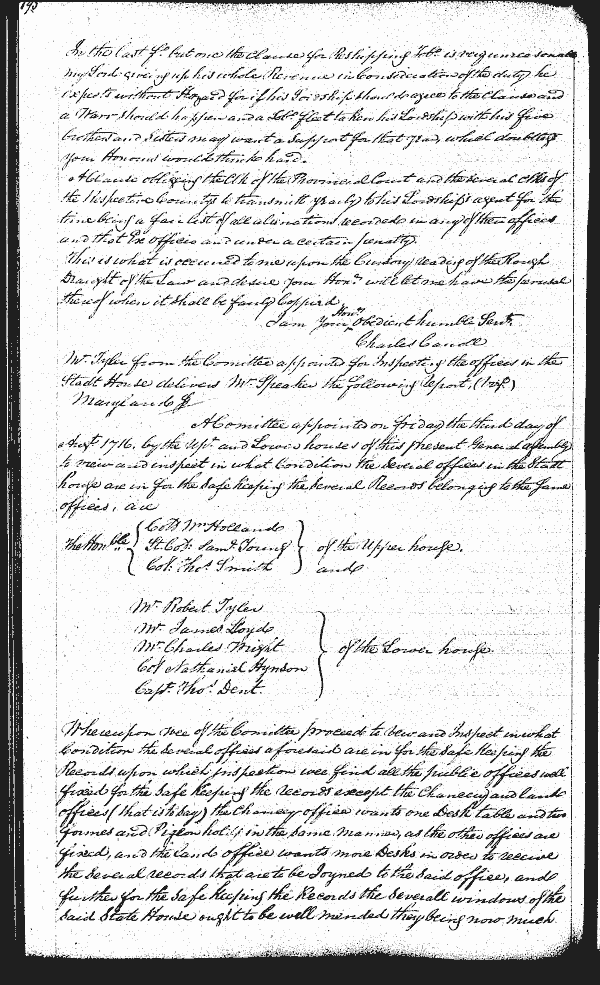 In the last §. but one the Clause for Reshipping Tobo. is very unreasonable
my Lord giving up his whole Revenue in Consideration of the duty he
expects without Regard for if his Lordship should agree to the Clause and
a Warr should happen and a fleet taken his Lordship with his five
brothers and Sisters may want a Support for that year, which doubtless
your Honours would think hard.
A Clause obliging the Clk of the Provincial Court and the several Clks of
the Respective Countys to transmitt yearly to his Lordships agent for the
time being a fair List of all alienations recorded in any of their offices
and that Ex officio and under a certain penalty.
This is what is occurred to me upon the Cursory reading of the Rough
Draught of the Law and desire your Honrs. will let me have the perusal
thereof when it shall be fairly Coppied
I am Your Honrs. Obedient humble Servt.
Charles Carroll
Mr. Tyler from the Comittee appointed for Inspecting the offices in the
Stadt House delivers Mr. Speaker the following Report, (Vizt)
Maryland ss
A Comittee appointed on friday the third day of
Augt 1716. by the upr. and Lower houses of this present General assembly
to view and inspect in what Condition the Several offices in the Stadt
house are in for the Safe keeping the Several Records belonging to the Same
offices, are
The Honble. { Coll Wm Holland
Lt. Col: Saml. Young } of the Upper house.
Col: Thos. Smith and
Mr. Robert Tyler
Mr. James Lloyd
Mr. Charles Wright } of the Lower house
Col Nathaniel Hynson
Capt. Thos. Dent
Whereupon wee of the Comittee proceed to vew and Inspect in what
Condition the Several offices aforesaid are in for the Safe keeping the
Records upon which inspection wee find all the publick offices well
fixed for the Safe keeping the Records except the Chancery and land
offices (that is to say) the Chancry office wants one Desk table and two
formes and Pigeon holes in the Same manner, as the other offices are
fixed, and the Land office wants more Desks in order to receive
the Several records that are to be Joyned to the Said office, and
further for the Safe keeping the Records the Severall windows of the
Said State House ought to be well mended they being now much